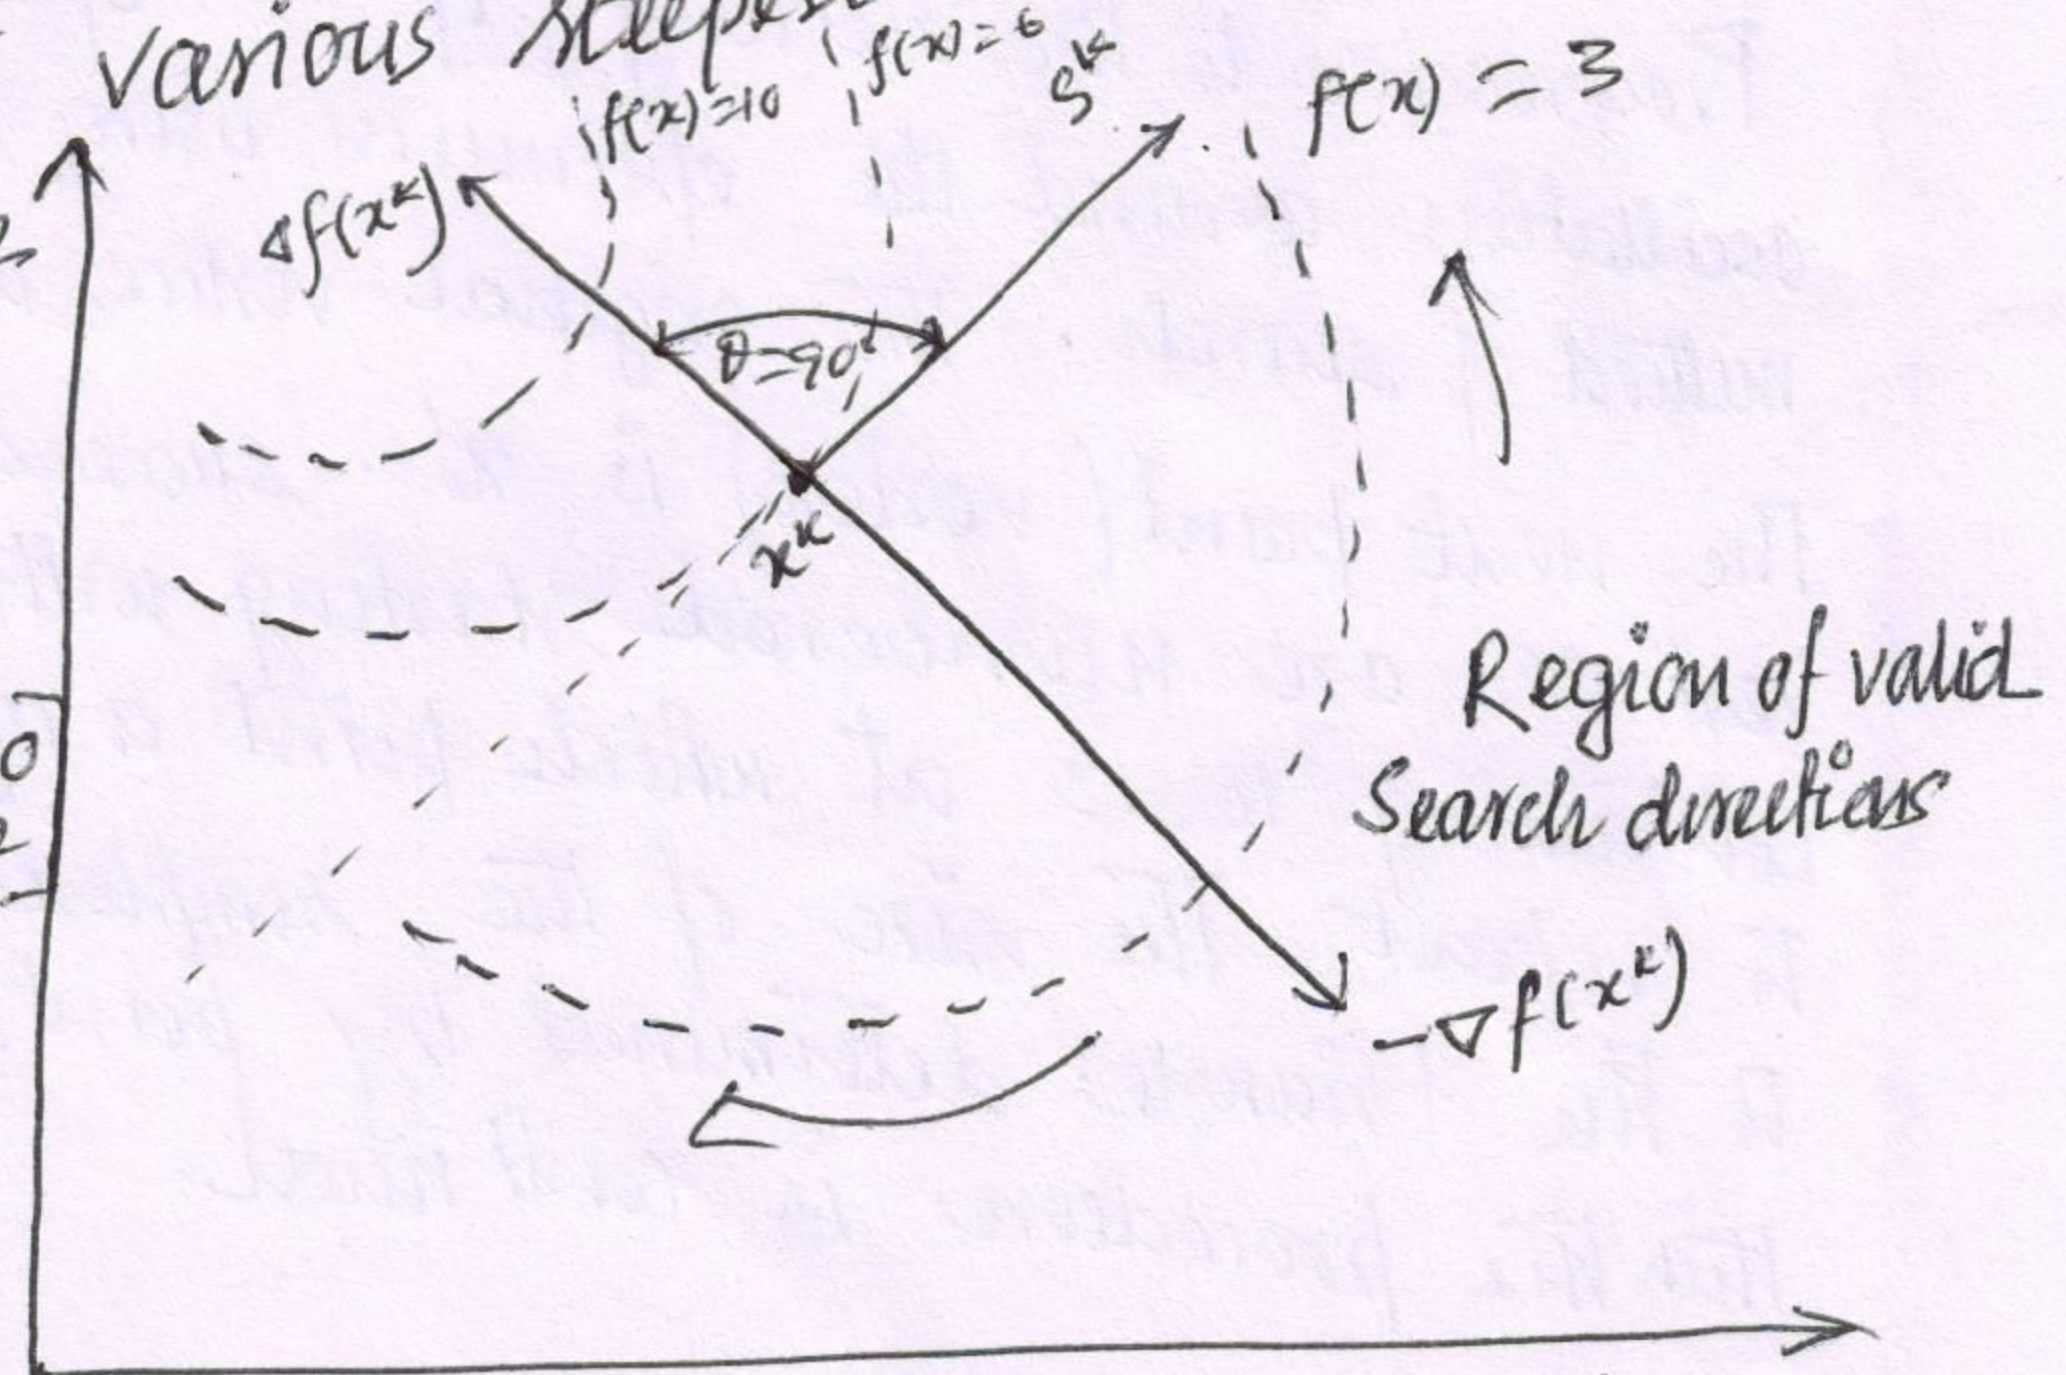 various steepes
f(x)=10
f(x)=6
Sᴷ
f(x) = 3
∇f(xᴷ)
θ=90°
xᴷ
Region of valid
Search directions
-∇f(xᴷ)
0